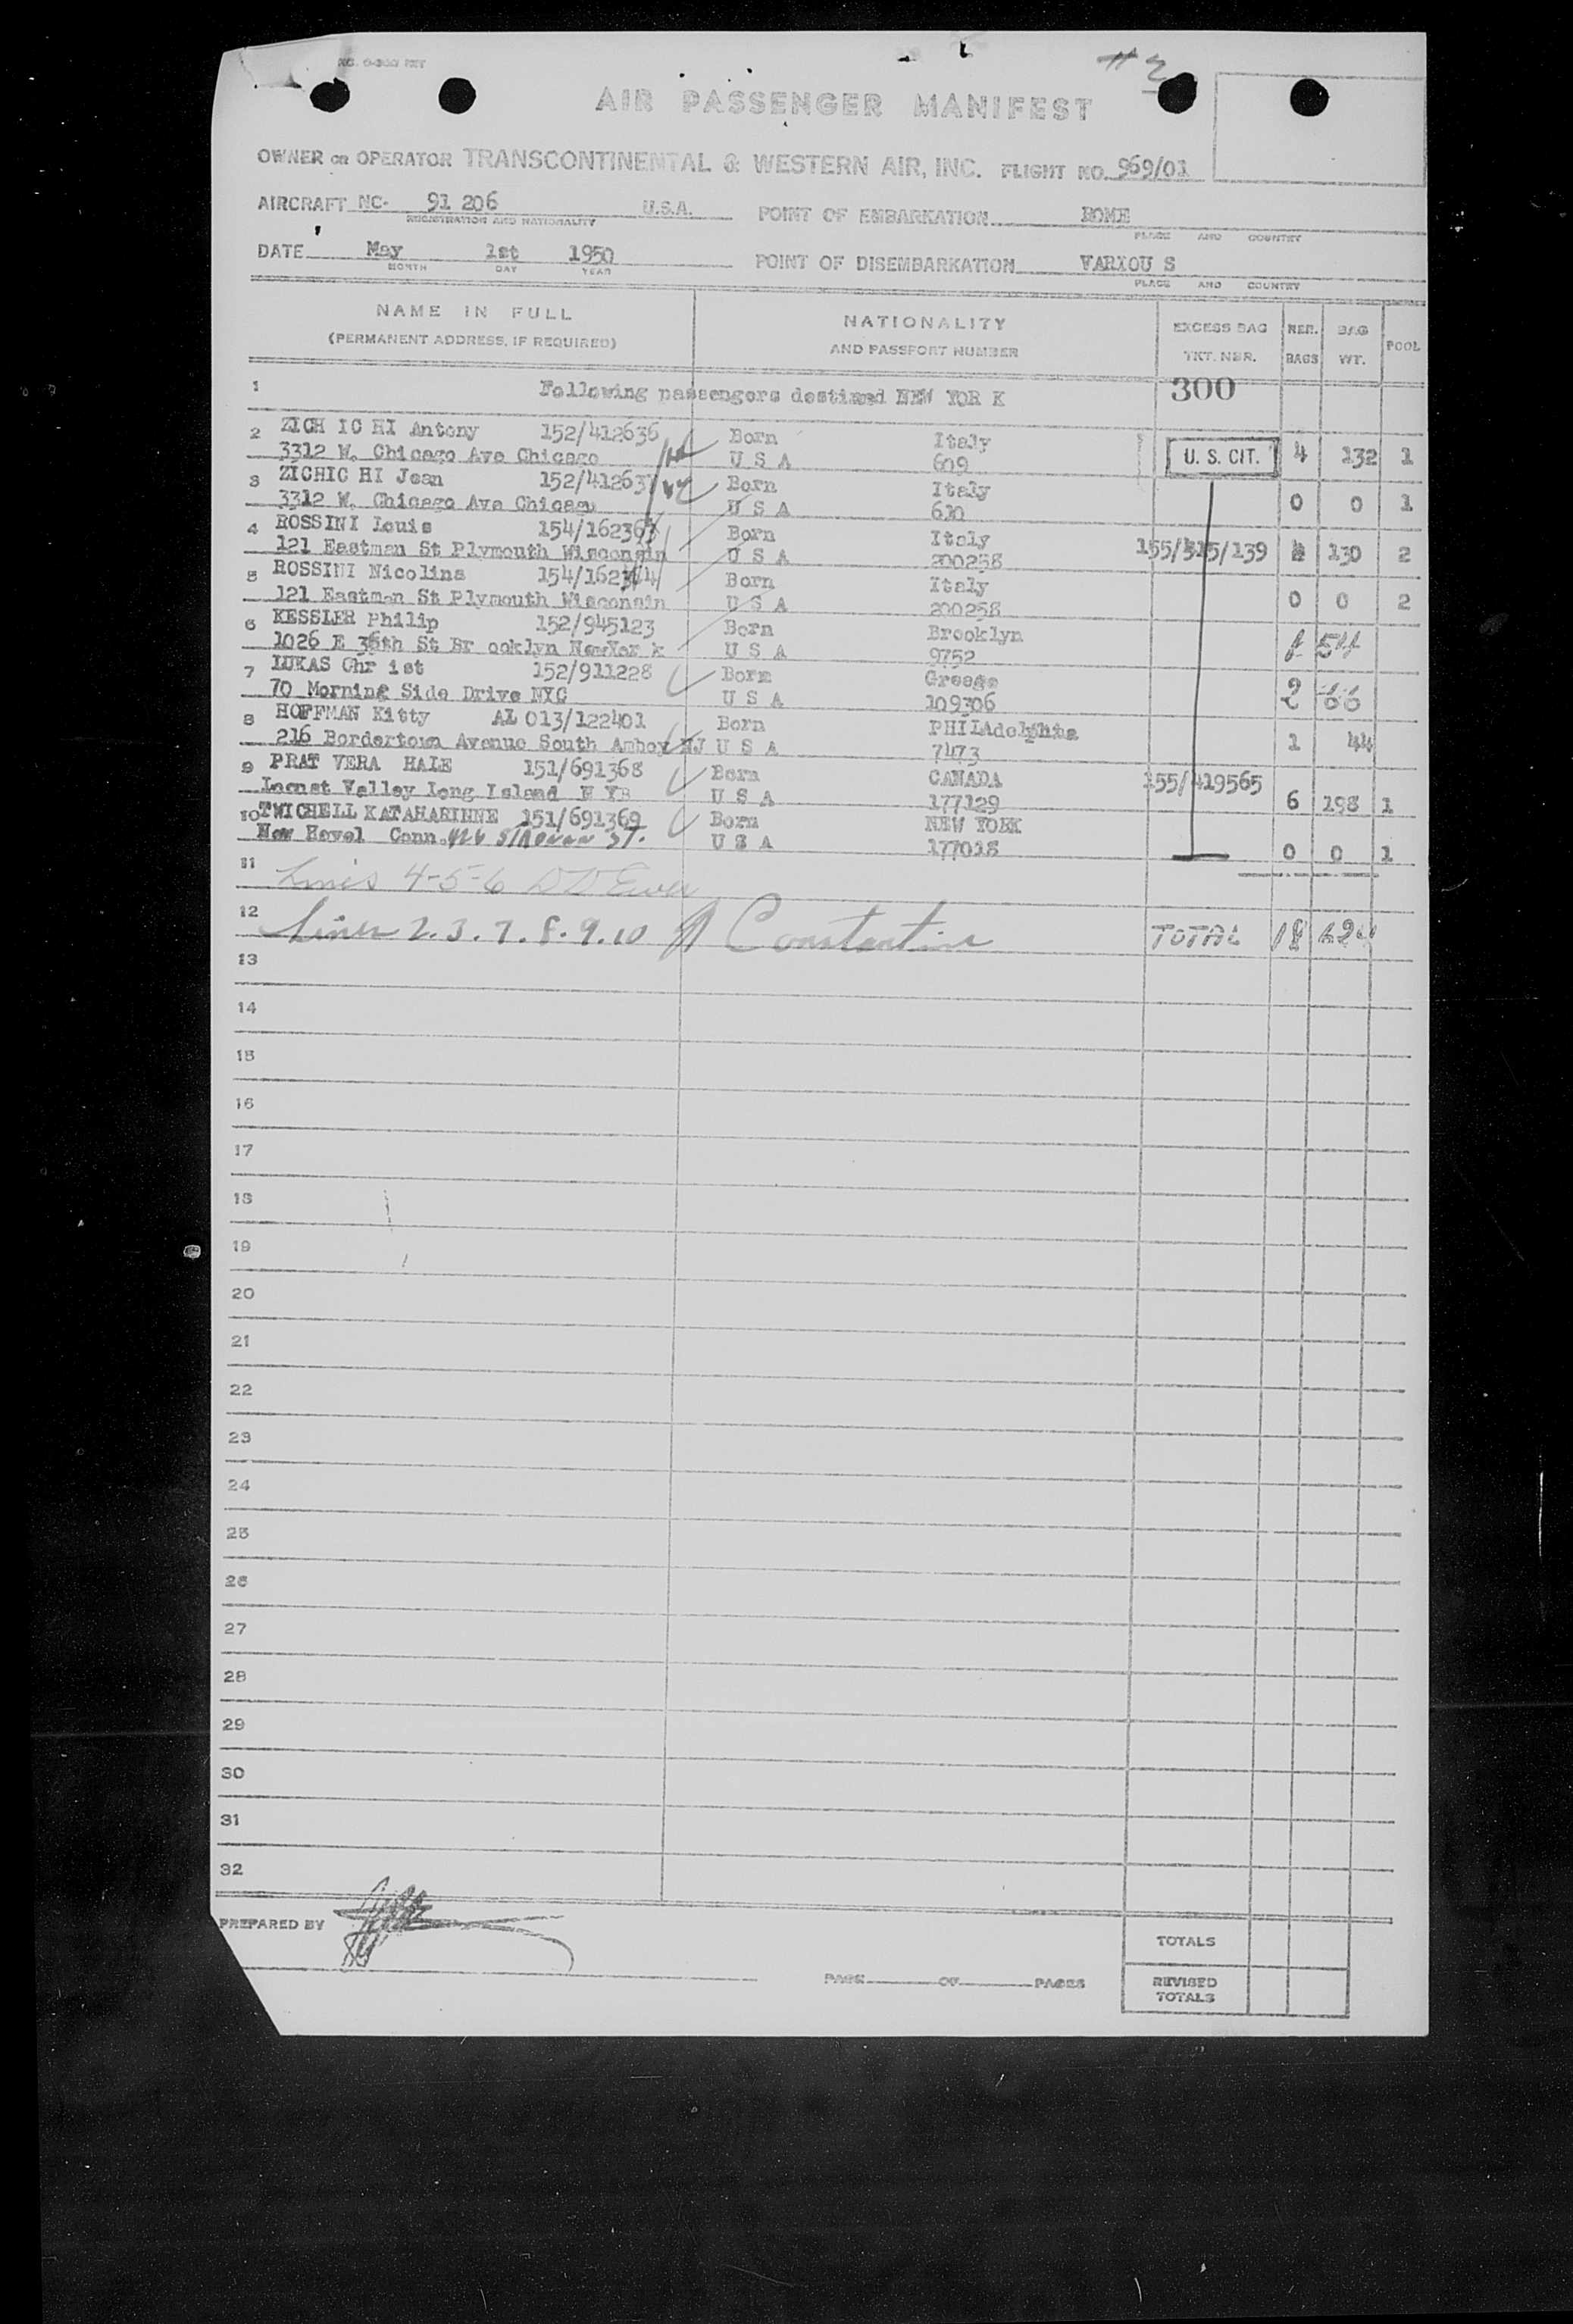 # 2
AIR PASSENGER MANIFEST
OWNER OR OPERATOR TRANSCONTINENTAL & WESTERN AIR, INC. FLIGHT NO. 969/01
AIRCRAFT NC- 91 206 U.S.A. POINT OF EMBARKATION ROME
REGISTRATION AND NATIONALITY PLACE AND COUNTRY
DATE May 1st 1950 POINT OF DISEMBARKATION VARIOU S
MONTH DAY YEAR PLACE AND COUNTRY
NAME IN FULL NATIONALITY EXCESS BAG NBR. BAG POOL
(PERMANENT ADDRESS, IF REQUIRED) AND PASSPORT NUMBER TKT. NBR. BAGS WT.
1 Following passengers destined NEW YOR K 300
2 ZICH IC HI Antony 152/412636 Born Italy
3312 W. Chicago Ave Chicago U S A 609 U. S. CIT. 4 132 1
3 ZICHIC HI Jean 152/412637 Born Italy
3312 W. Chicago Ave Chicago U S A 610 0 0 1
4 ROSSINI Louis 154/162363 Born Italy
121 Eastman St Plymouth Wisconsin U S A 200258 155/315/139 4 130 2
5 ROSSINI Nicolina 154/162344 Born Italy
121 Eastman St Plymouth Wisconsin U S A 200258 0 0 2
6 KESSLER Philip 152/945123 Born Brooklyn
1026 E 36th St Br ooklyn NewYor k U S A 9752 1 54
7 LUKAS Chr ist 152/911228 Born Greege
70 Morning Side Drive NYC U S A 109306 2 66
8 HOFFMAN Kitty AL 013/122401 Born PHILAdelphia
216 Bordertown Avenue South Amboy NJ U S A 7473 1 44
9 PRAT VERA HALE 151/691368 Born CANADA 155/419565
Locust Valley Long Island N YB U S A 177129 6 198 1
10 TWICHELL KATAHARINNE 151/691369 Born NEW YORK
New Havel Conn. St. U S A 177018 0 0 1
11 Lines 4-5-6
12 Lines 2.3.7.8.9.10 Constantine TOTAL 18 624
13
14
15
16
17
18
19
20
21
22
23
24
25
26
27
28
29
30
31
32
PREPARED BY
TOTALS
PAGE OF PAGES
REVISED
TOTALS